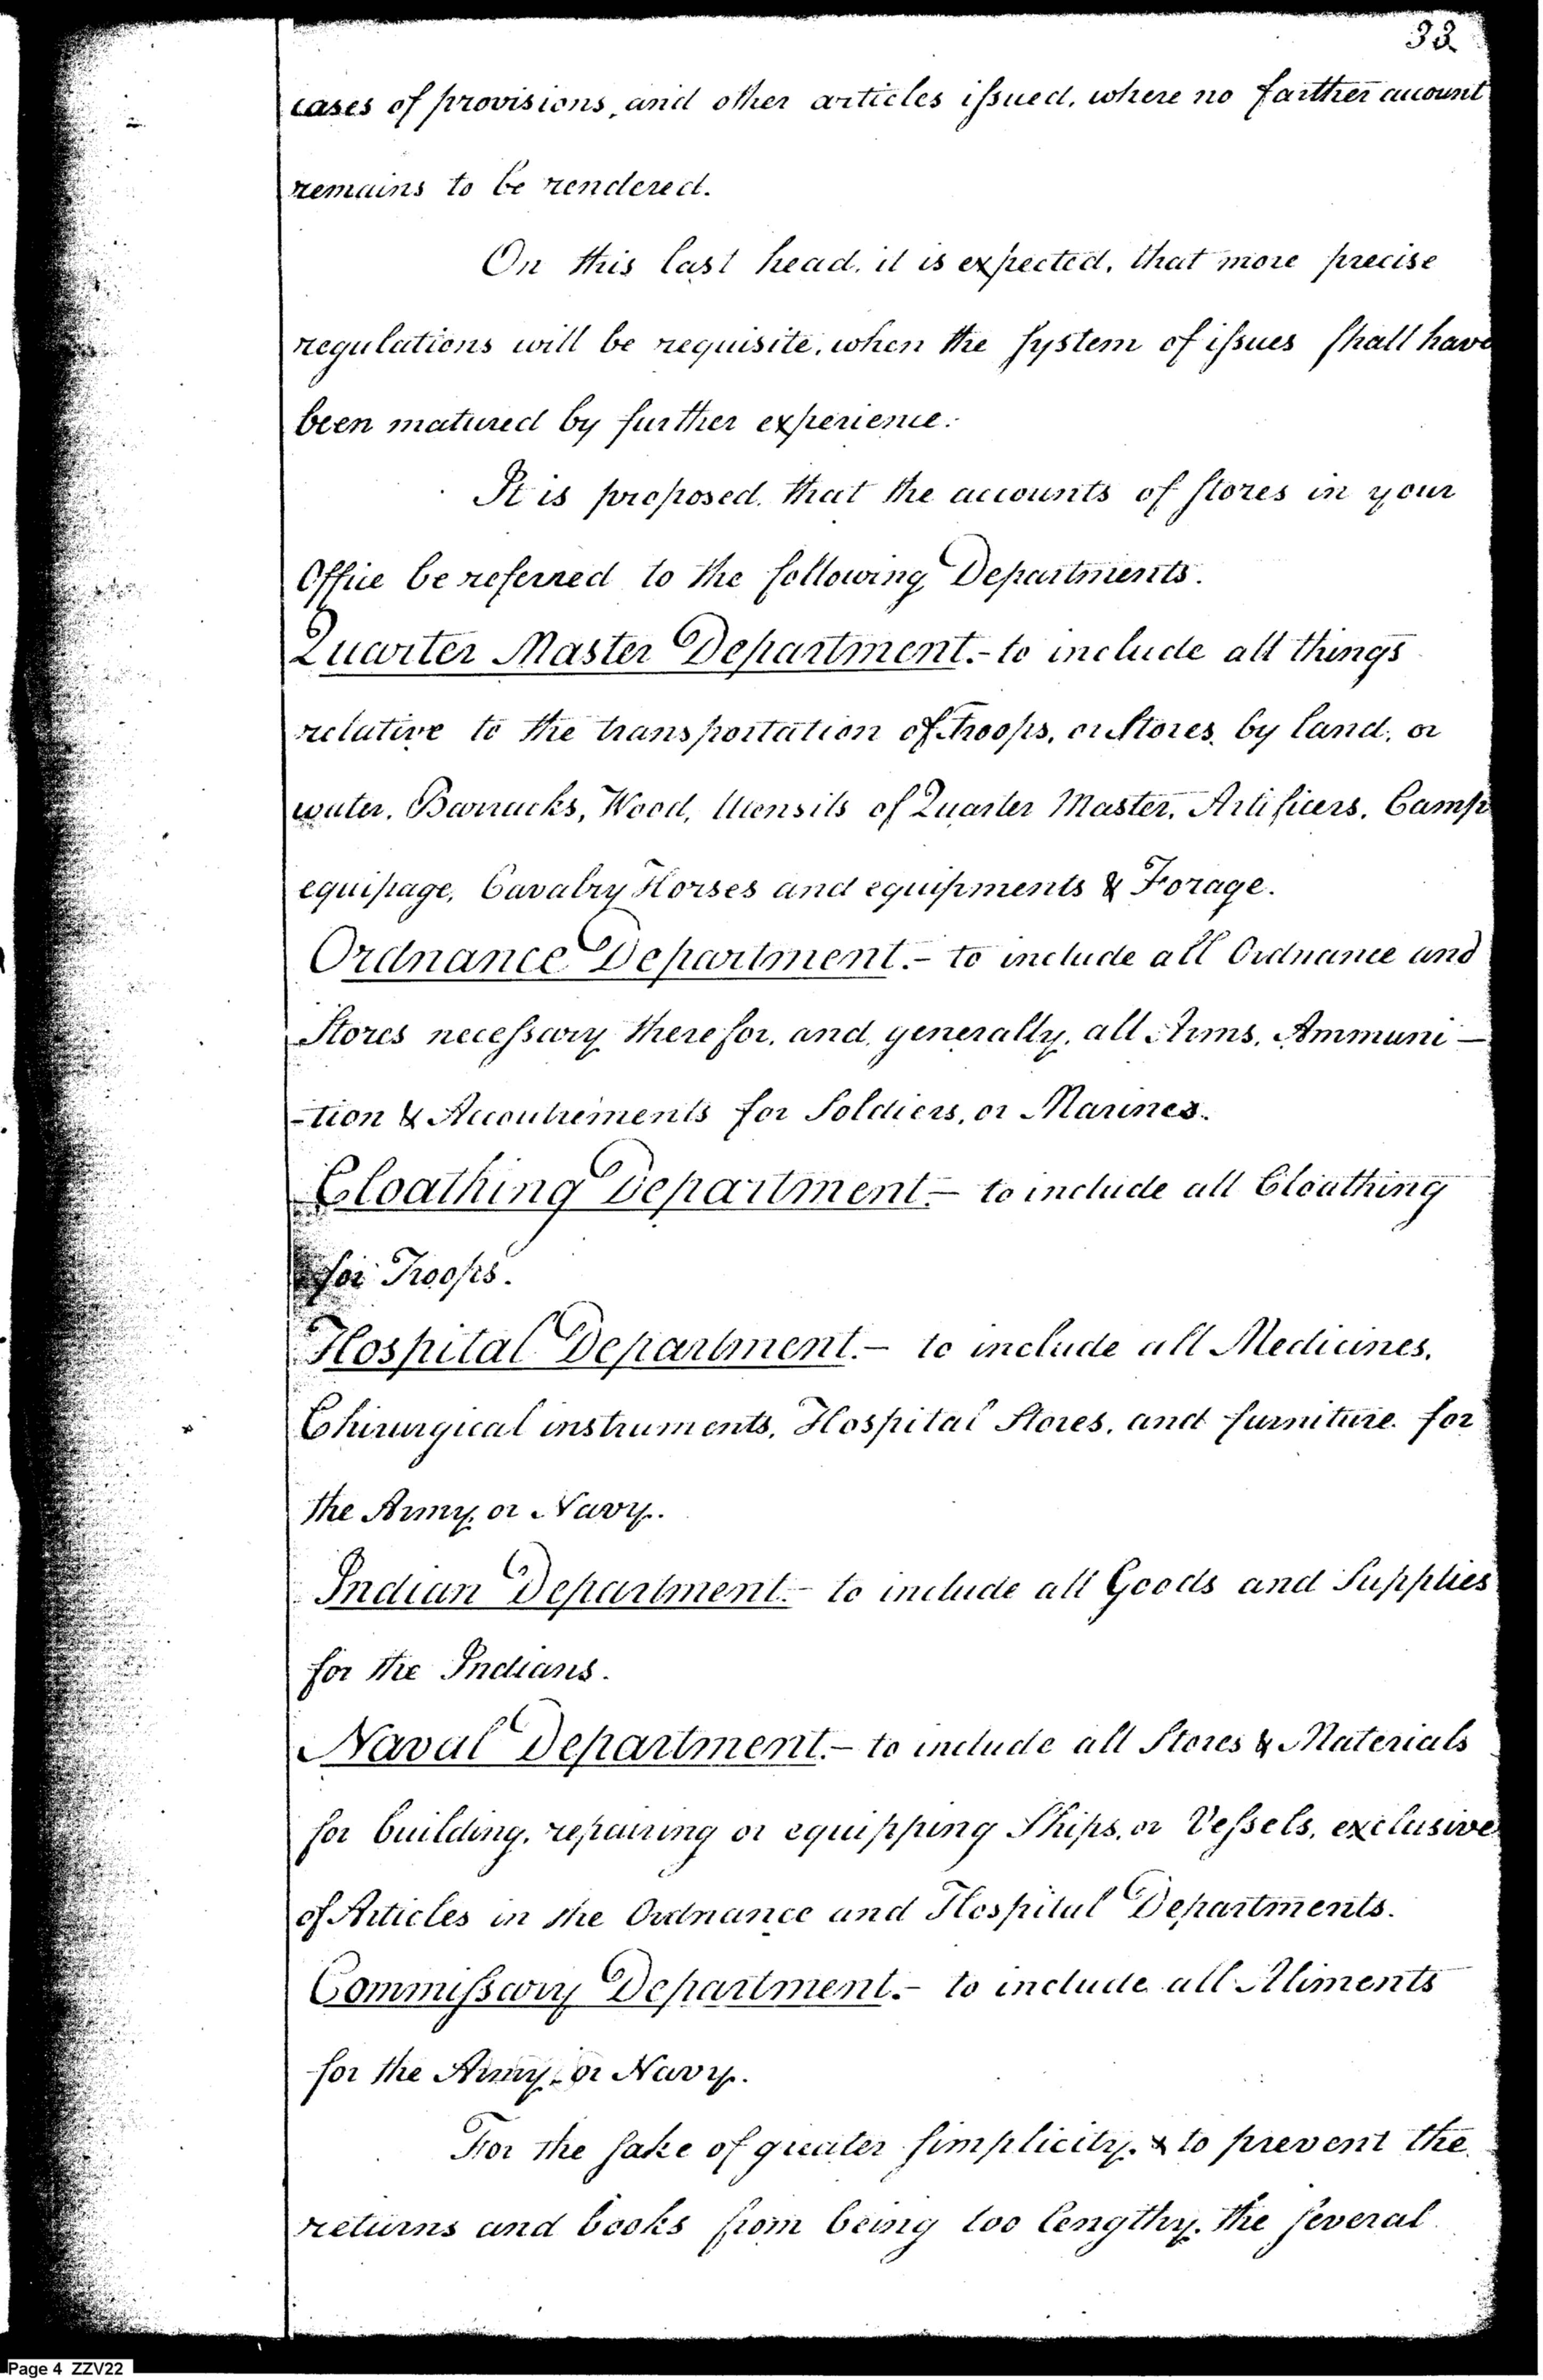 33
cases of provisions, and other articles issued, where no farther account
remains to be rendered.
On this last head, it is expected, that more precise
regulations will be requisite, when the system of issues shall have
been matured by further experience.
It is proposed, that the accounts of stores in your
Office be referred to the following Departments.
Quarter Master Department.- to include all things
relative to the transportation of troops, or Stores, by land, or
water, Barracks, Wood, Utensils of Quarter Master, Artificers, Camp
equipage, Cavalry Horses and equipments & Forage.
Ordnance Department.- to include all Ordnance and
Stores necessary therefor, and, generally, all Arms, Ammuni-
-tion & Accoutrements for Soldiers, or Marines.
Cloathing Department- to include all Cloathing
for Troops.
Hospital Department.- to include all Medicines,
Chirurgical instruments, Hospital Stores, and furniture for
the Army, or Navy.
Indian Department.- to include all Goods and Supplies
for the Indians.
Naval Department.- to include all Stores & Materials
for building, repairing or equipping Ships, or Vessels, exclusive
of Articles in the Ordnance and Hospital Departments.
Commissary Department.- to include all Aliments
for the Army, or Navy.
For the sake of greater simplicity, & to prevent the
returns and books from being too lengthy, the several
Page 4 ZZV22